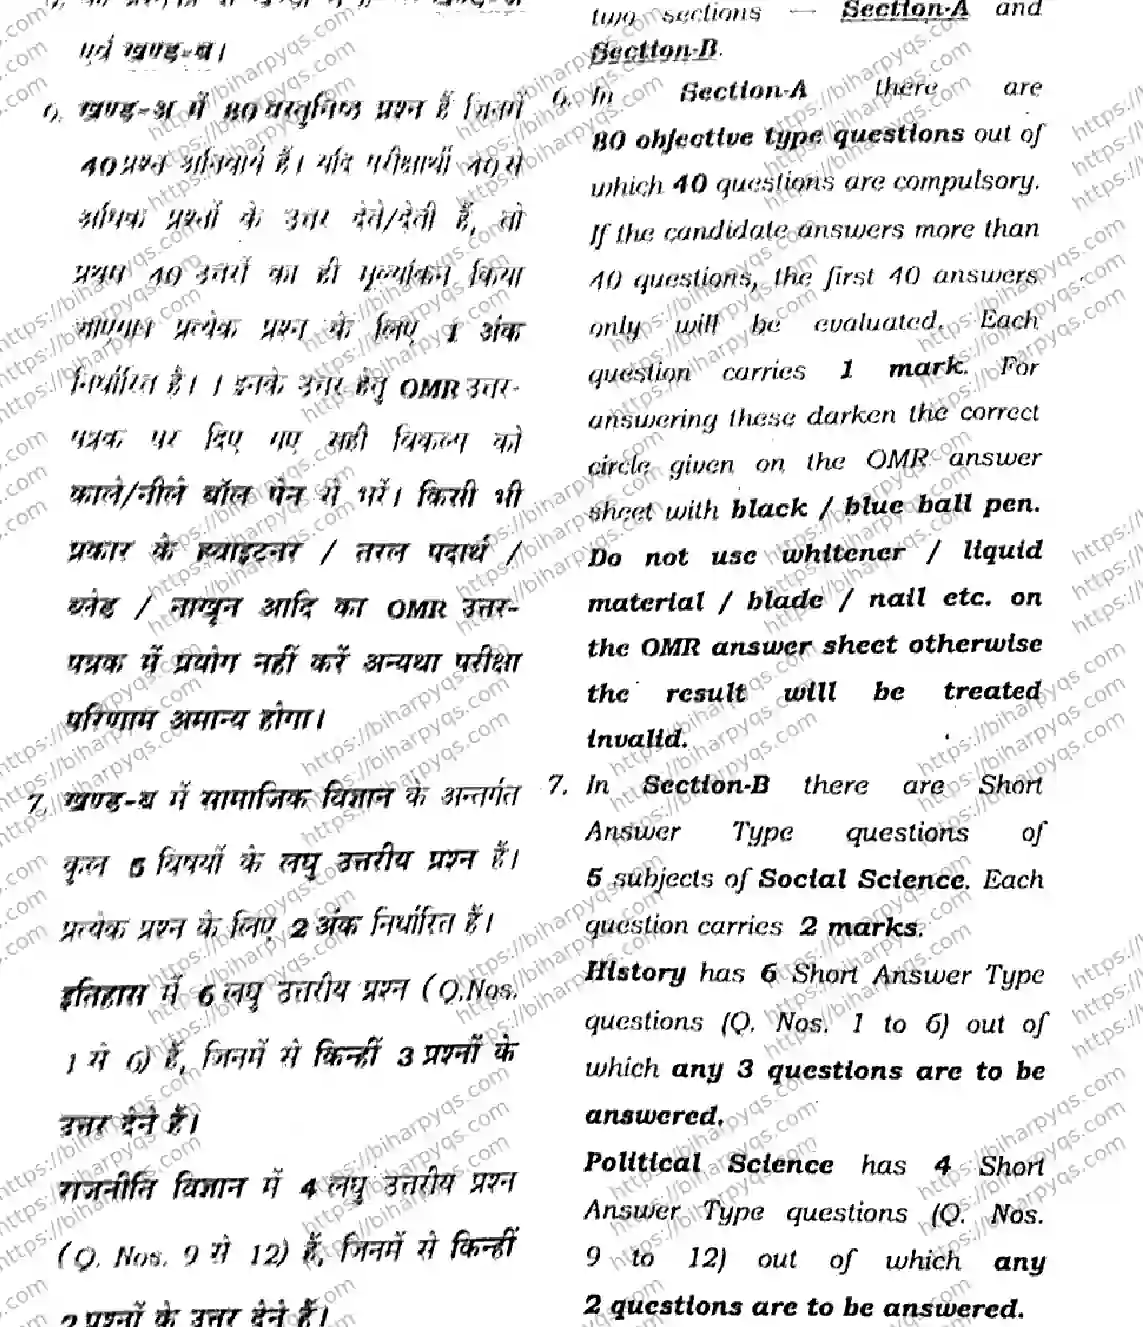 एवं खण्ड-ब।
6. खण्ड-अ में 80 वस्तुनिष्ठ प्रश्न हैं जिनमें
40 प्रश्न अनिवार्य हैं। यदि परीक्षार्थी 40 से
अधिक प्रश्नों के उत्तर देते/देती हैं, तो
प्रथम 40 उत्तरों का ही मूल्यांकन किया
जाएगा। प्रत्येक प्रश्न के लिए 1 अंक
निर्धारित है। । इनके उत्तर हेतु OMR उत्तर-
पत्रक पर दिए गए सही विकल्प को
काले/नीले बॉल पेन से भरें। किसी भी
प्रकार के ह्वाइटनर / तरल पदार्थ /
ब्लेड / नाखून आदि का OMR उत्तर-
पत्रक में प्रयोग नहीं करें अन्यथा परीक्षा
परिणाम अमान्य होगा।
7. खण्ड-ब में सामाजिक विज्ञान के अन्तर्गत
कुल 5 विषयों के लघु उत्तरीय प्रश्न हैं।
प्रत्येक प्रश्न के लिए 2 अंक निर्धारित है।
इतिहास में 6 लघु उत्तरीय प्रश्न (Q.Nos.
1 से 6) हैं, जिनमें से किन्हीं 3 प्रश्नों के
उत्तर देने हैं।
राजनीति विज्ञान में 4 लघु उत्तरीय प्रश्न
(Q. Nos. 9 से 12) हैं, जिनमें से किन्हीं
2 प्रश्नों के उत्तर देने हैं।
two sections — Section-A and
Section-B.
6. In Section-A there are
80 objective type questions out of
which 40 questions are compulsory.
If the candidate answers more than
40 questions, the first 40 answers
only will be evaluated. Each
question carries 1 mark. For
answering these darken the correct
circle given on the OMR answer
sheet with black / blue ball pen.
Do not use whitener / liquid
material / blade / nail etc. on
the OMR answer sheet otherwise
the result will be treated
invalid.
7. In Section-B there are Short
Answer Type questions of
5 subjects of Social Science. Each
question carries 2 marks.
History has 6 Short Answer Type
questions (Q. Nos. 1 to 6) out of
which any 3 questions are to be
answered.
Political Science has 4 Short
Answer Type questions (Q. Nos.
9 to 12) out of which any
2 questions are to be answered.
https://biharpyqs.com